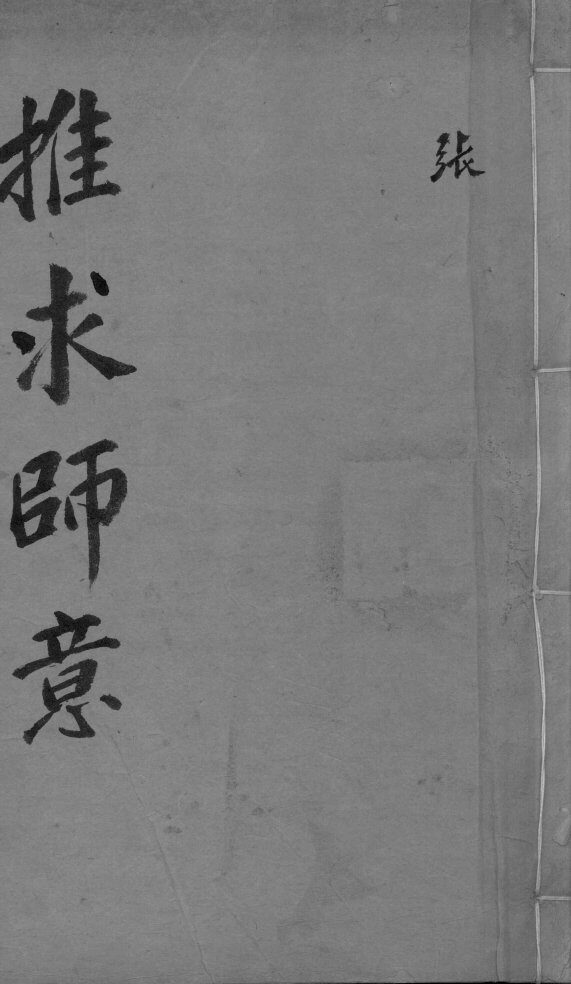 張
推求師意